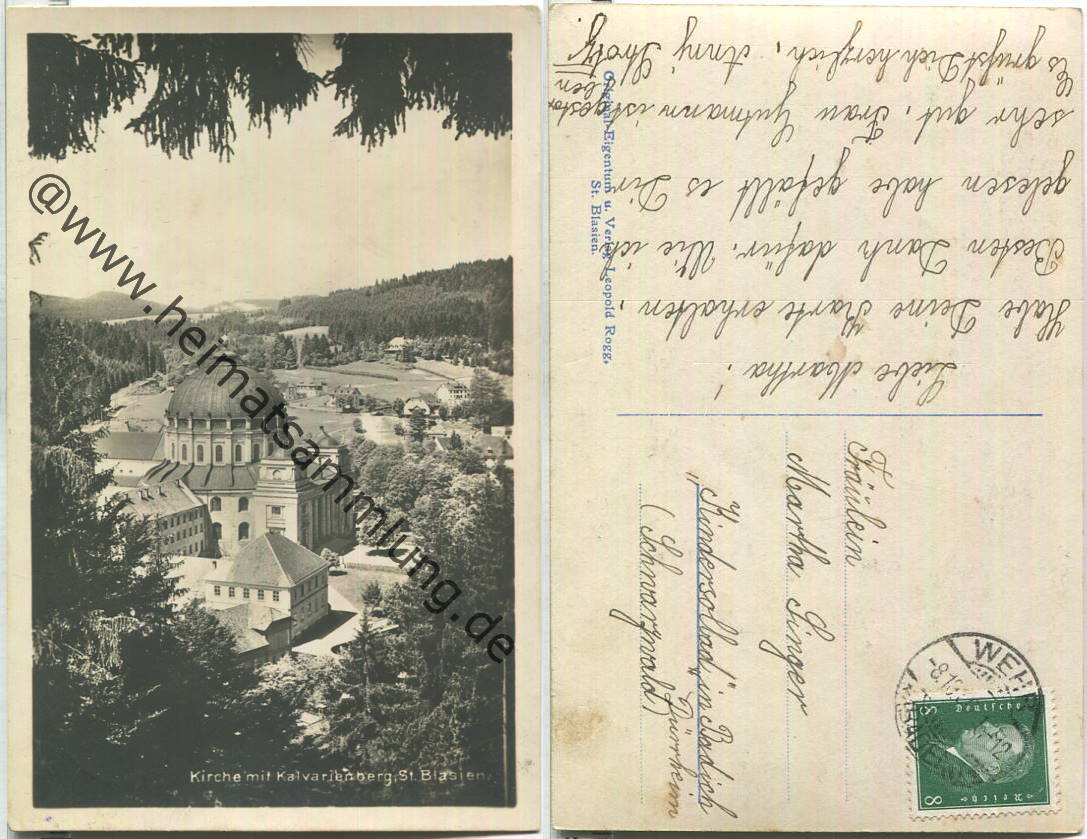 @www.heimatsammlung.de
Kirche mit Kalvarienberg, St. Blasien.
Liebe Martha!
Habe Deine Karte erhalten.
Besten Dank dafür. Wie ich
gelesen habe gefällt es Dir
sehr gut. Frau Gutmann ist gestor
ben
Es grüßt Dich herzlich, Anny
Original-Eigentum u. Verlag Leopold Rogg,
St. Blasien.
Fräulein
Martha Singer
„Kindersolbad" in Badisch
Dürrheim
(Schwarzwald)
WEHR
8
Deutsches
Reich
8